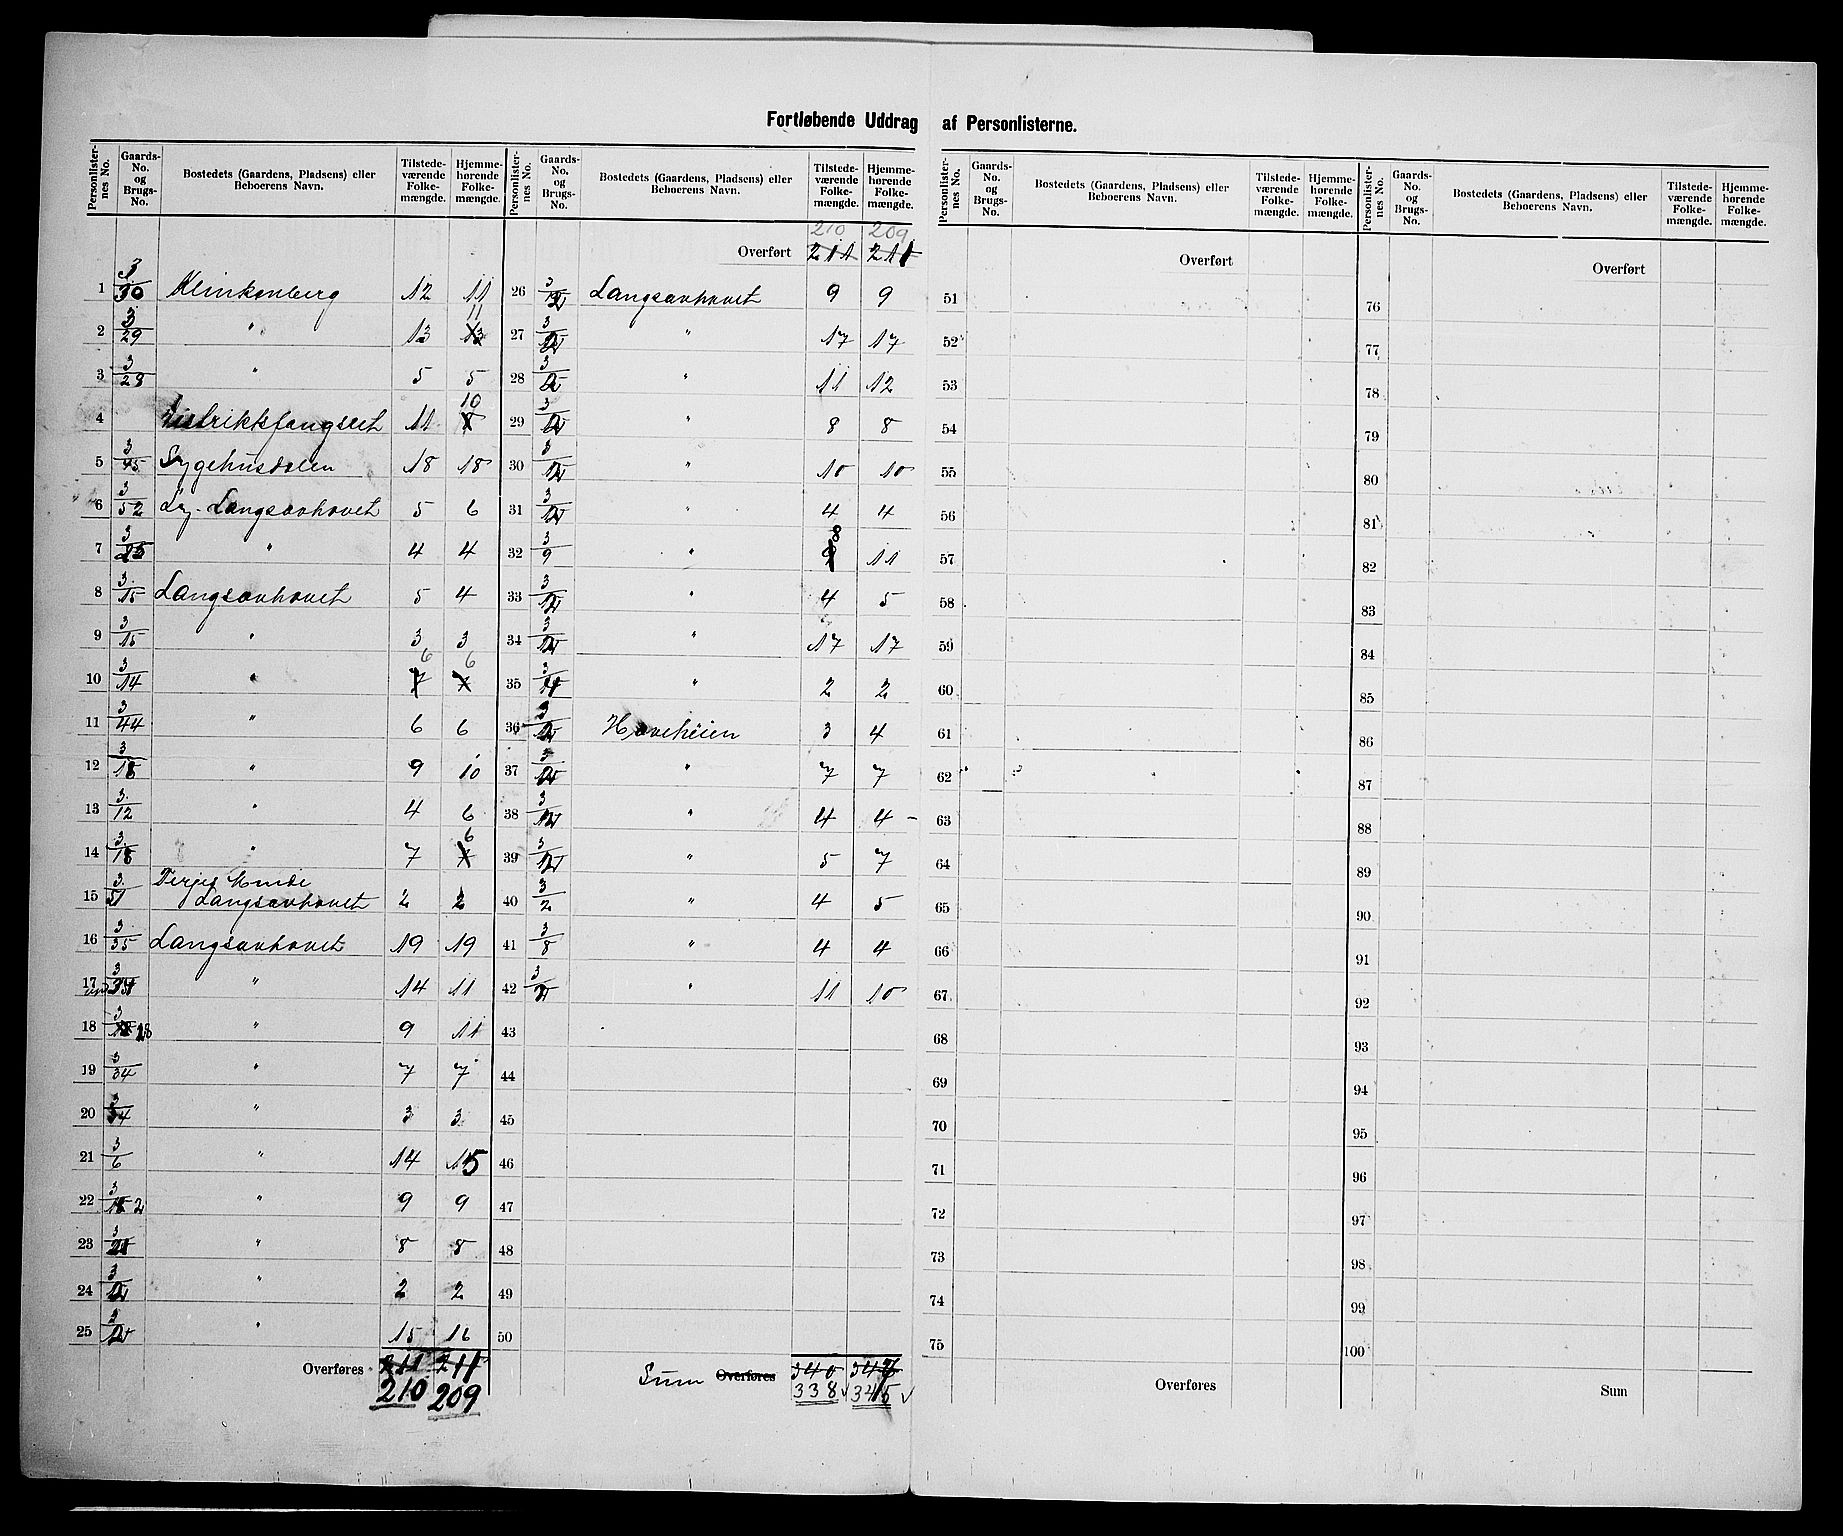 Fortløbende Uddrag af Personlisterne.
Personlister-nes No. | Gaards-No. og Brugs-No. | Bostedets (Gaardens, Pladsens) eller Beboerens Navn. | Tilstede-værende Folke-mængde. | Hjemme-hørende Folke-mængde.
1 3/30 Klinkenberg 12 11
2 3/29 " 13 11
3 3/28 " 5 5
4 Distriktsfængslet 11 10
5 3/45 Sygehusdalen 18 18
6 3/52 Langsævhovet 5 6
7 3/25 " 4 4
8 3/15 Langsævhovet 5 4
9 3/15 " 3 3
10 3/14 " 6 6
11 3/44 " 6 6
12 3/18 " 9 10
13 3/12 " 4 6
14 3/18 " 7 6
15 3/51 Terjes Minde
Langsævhovet 2 2
16 3/35 Langsævhovet 19 19
17 3/ " 14 11
18 3/ 18 " 9 11
19 3/34 " 7 7
20 3/34 " 3 3
21 3/6 " 14 15
22 3/ 2 " 9 9
23 3/21 " 8 8
24 3/ " 2 2
25 3/ " 15 16
Overføres 211 211
210 209
Personlister-nes No. | Gaards-No. og Brugs-No. | Bostedets (Gaardens, Pladsens) eller Beboerens Navn. | Tilstede-værende Folke-mængde. | Hjemme-hørende Folke-mængde.
210 209
Overført 211 211
26 3/ Langsævhovet 9 9
27 3/ " 17 17
28 3/ " 11 12
29 3/ " 8 8
30 3/ " 10 10
31 3/ " 4 4
32 3/9 " 8 11
33 3/ " 4 5
34 3/ " 17 17
35 3/ " 2 2
36 3/ Haveheien 3 4
37 3/ " 7 7
38 3/ " 4 4
39 3/ " 5 7
40 3/2 " 4 5
41 3/8 " 4 4
42 3/ " 11 10
43
44
45
46
47
48
49
50
Sum Overføres 340 347
338 345
Personlister-nes No. | Gaards-No. og Brugs-No. | Bostedets (Gaardens, Pladsens) eller Beboerens Navn. | Tilstede-værende Folke-mængde. | Hjemme-hørende Folke-mængde.
Overført
51
52
53
54
55
56
57
58
59
60
61
62
63
64
65
66
67
68
69
70
71
72
73
74
75
Overføres
Personlister-nes No. | Gaards-No. og Brugs-No. | Bostedets (Gaardens, Pladsens) eller Beboerens Navn. | Tilstede-værende Folke-mængde. | Hjemme-hørende Folke-mængde.
Overført
76
77
78
79
80
81
82
83
84
85
86
87
88
89
90
91
92
93
94
95
96
97
98
99
100
Sum